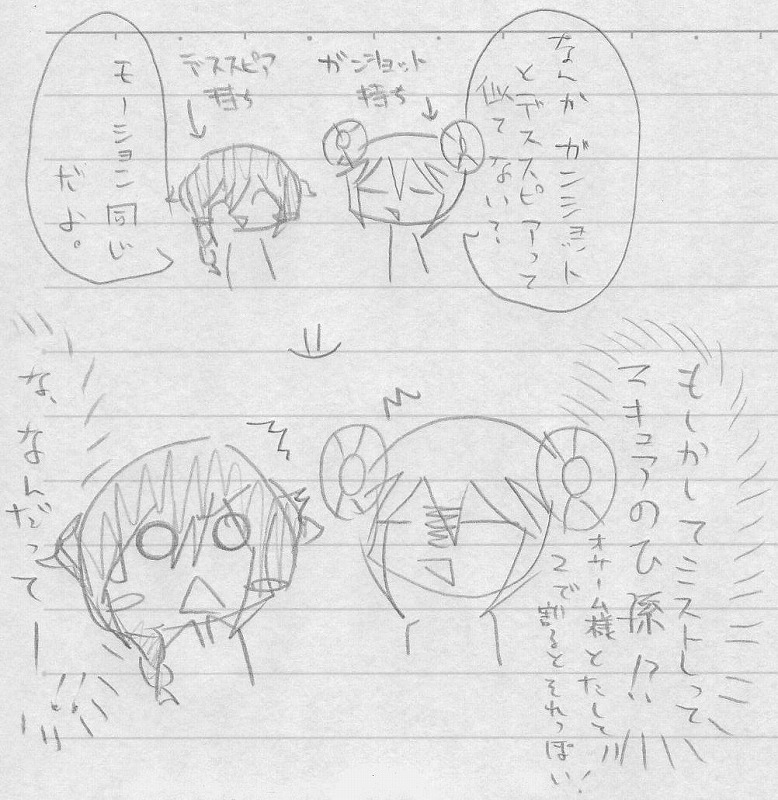 なんか ガンショット
とデススピアって
似てない？
ガンショット
持ち
デススピア
持ち
モーション同じ
だよ。
もしかしてミストしって
マキュアのひ孫!?
オサーム様とたして
2で割るとそれっぽい!
な、なんだってー!!